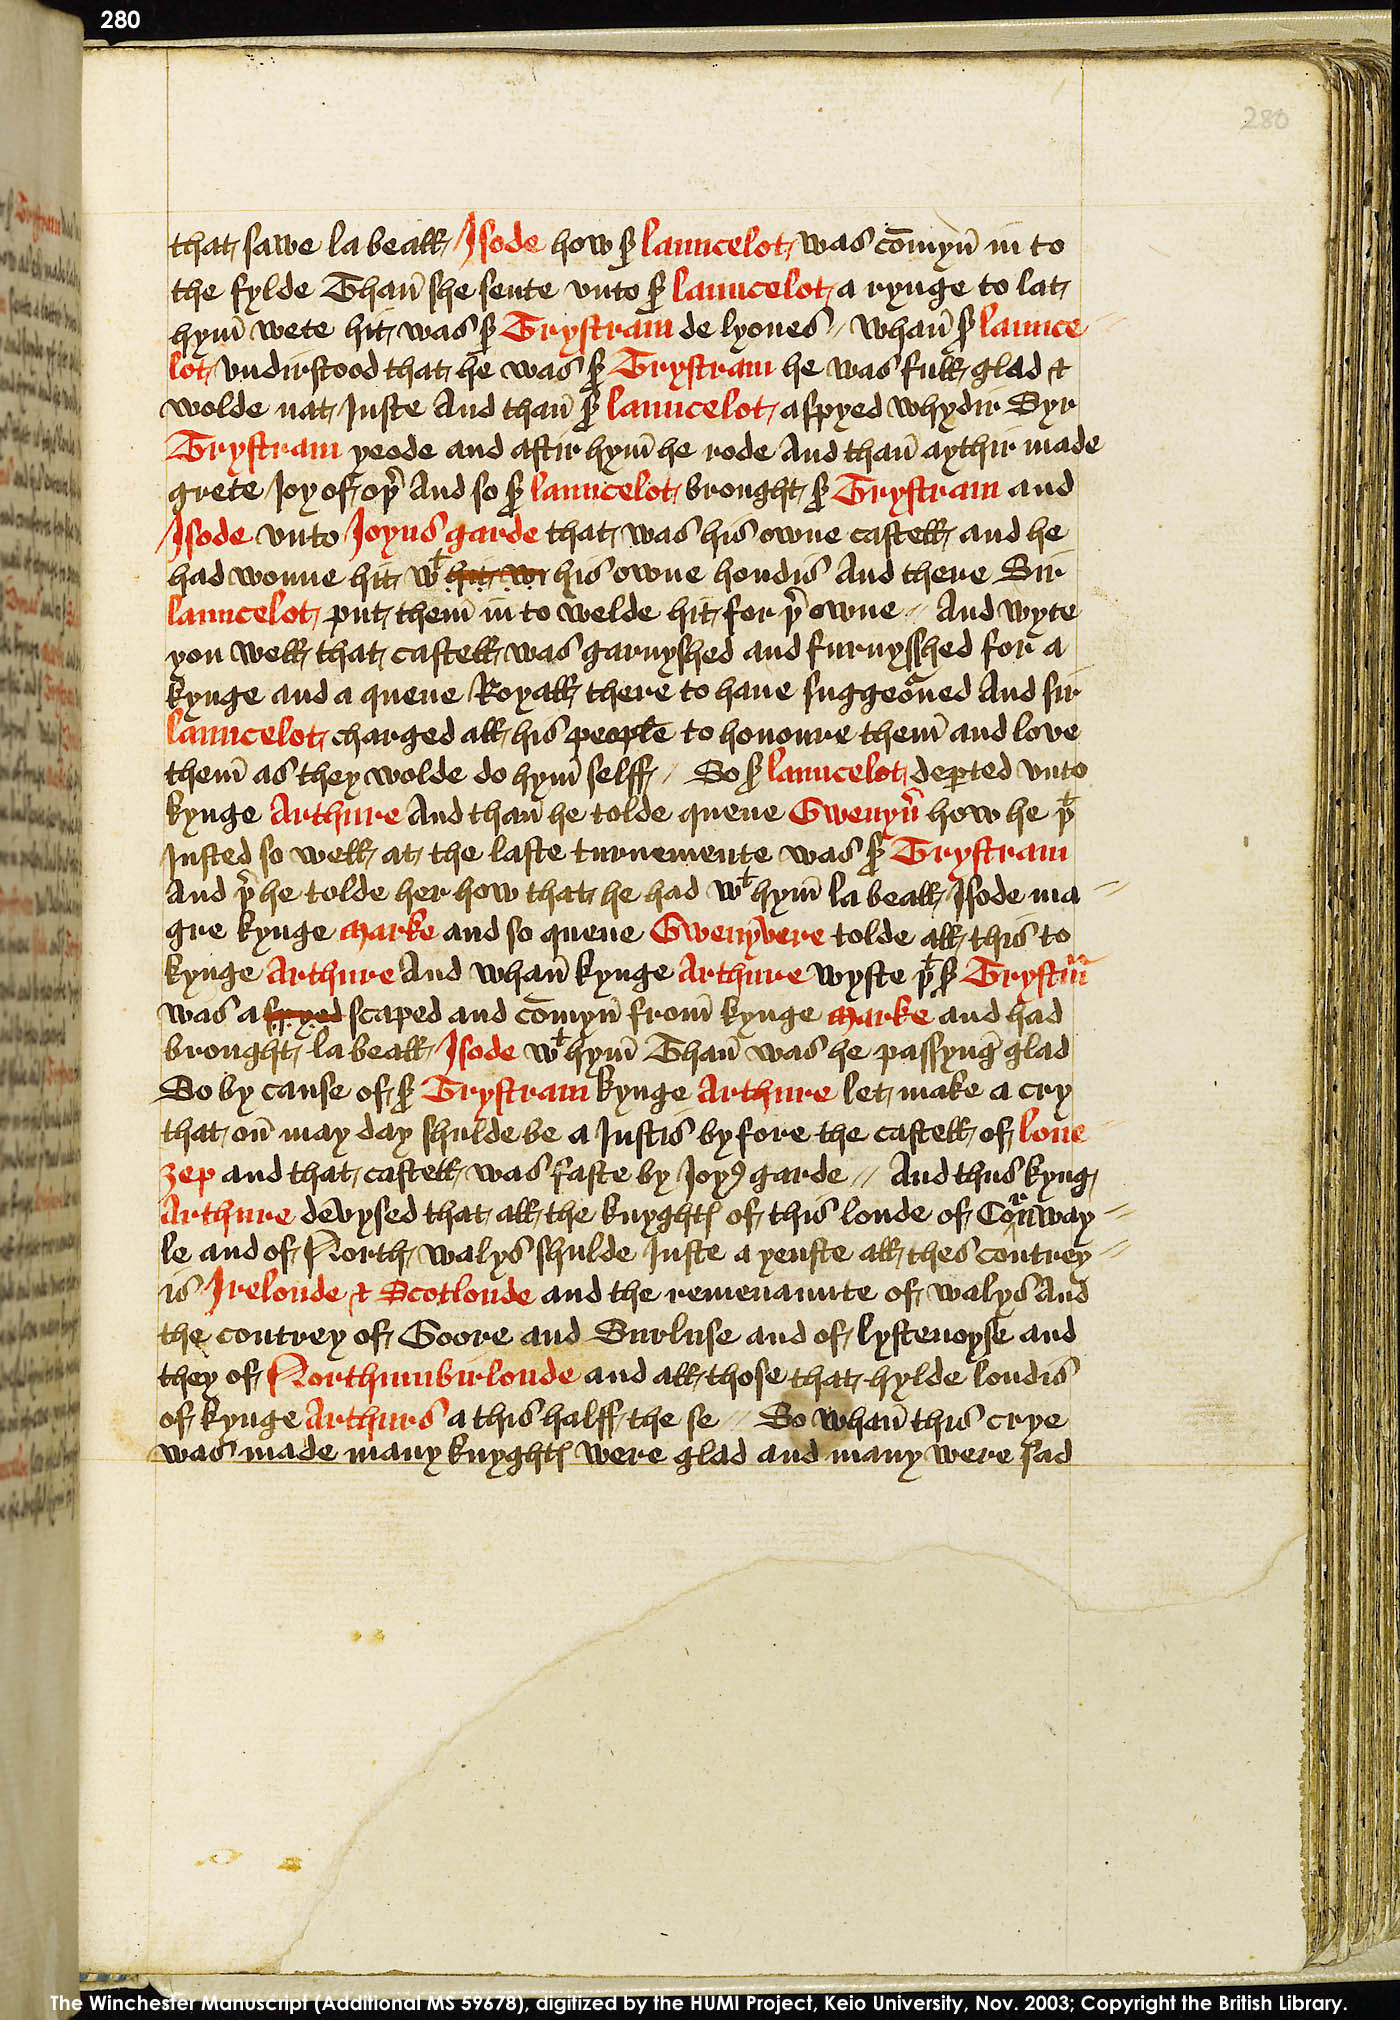 280
280
that sawe la beall Isode how sͬ launcelot was comyn̄ in to
the fylde Than̄ she sente vnto sͬ launcelot a rynge to lat
hym̄ wete hit was sͬ Trystram de lyones // Whan̄ sͬ launce
lot vndirstood that he was sͬ Trystram he was full glad &
wolde nat Juste And than̄ sͬ launcelot aspyed whydir Syr
Trystram yeode and aftir hym̄ he rode And than̄ aythir made
grete Joy of oþͬ And so sͬ launcelot brought sͬ Trystram and
Isode vnto Joyus garde that was his owne castell and he
had wonne hit wͭ hit wͭ his owne hondis And there Sir
launcelot put them̄ in to welde hit for þͬ owne // And wyte
you well that castell was garnyshed and furnysshed for a
kynge and a quene Royall there to haue suggeourned And sir
launcelot charged all his people to honoure them̄ and love
them̄ as they wolde do hym̄ selff // So sͬ launcelot deꝑted vnto
kynge Arthure And than̄ he tolde quene Gwenyūͬ how he þͭ
Justed so well at the laste turnemente was sͬ Trystram
And þͬ he tolde her how that he had wͭ hym̄ la beall Isode ma
gre kynge Marke and so quene Gwenyvere tolde all this to
kynge Arthure And whan̄ kynge Arthure wyste þͭ sͬ Trystrm̄
was a spyed scaped and comyn̄ from̄ kynge Marke and had
brought la beall Isode wͭ hym̄ Than̄ was he passynḡ glad
So by cause of sͬ Trystram kynge Arthure let make a cry
that on̄ may day shulde be a Justis by fore the castell of lone
zep and that castell was faste by Joyꝰ garde // And thus kyng
Arthure devysed that all the knyghtꝭ of this londe of Cornway
le and of North walys shulde Juste a yenste all thes contrey
is Irelonde & Scotlonde and the remenaunte of walys And
the contrey of Goore and Surluse and of lystenoyse and
they of Northumbirlonde and all those that hylde londis
of kynge Arthurs a this halff the se // So whan̄ this crye
was made many knyghtꝭ were glad and many were sad
The Winchester Manuscript (Additional MS 59678), digitized by the HUMI Project, Keio University, Nov. 2003; Copyright the British Library.